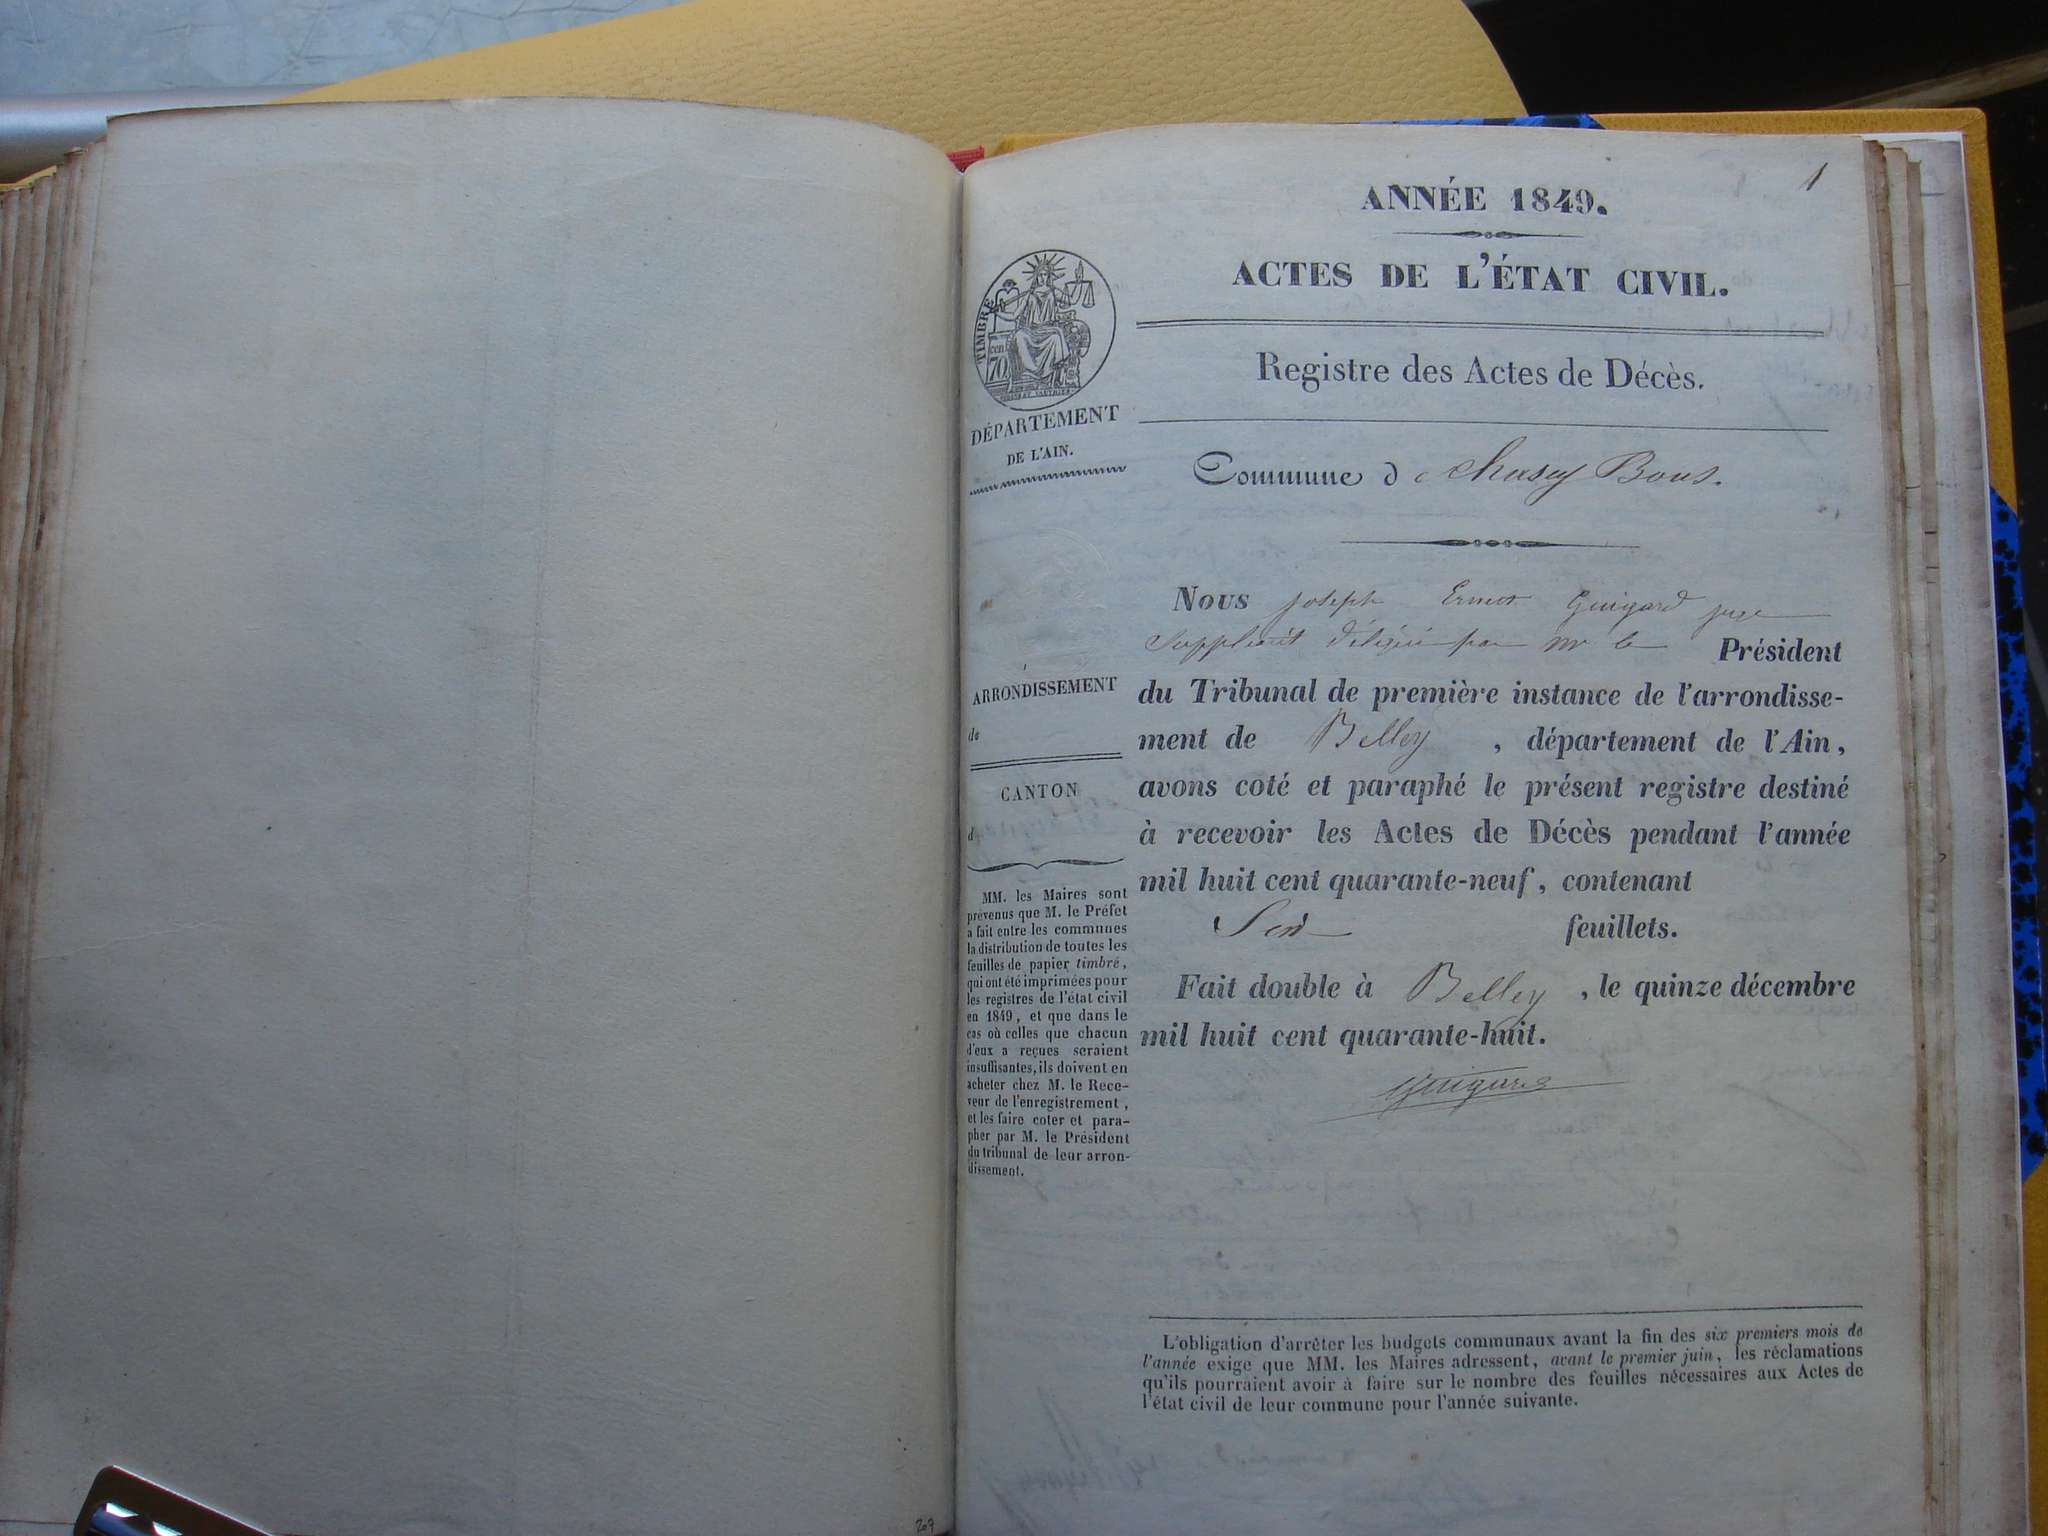 1
ANNÉE 1849.
ACTES DE L'ÉTAT CIVIL.
Registre des Actes de Décès.
TIMBRE
70
cent
DÉPARTEMENT
DE L'AIN.
Commune d
Nous joseph Ernest Guigard juge
suppléant délégué par mr le Président
du Tribunal de première instance de l'arrondisse-
ment de Belley , département de l'Ain,
avons coté et paraphé le présent registre destiné
à recevoir les Actes de Décès pendant l'année
mil huit cent quarante-neuf, contenant
feuillets.
Fait double à Belley , le quinze décembre
mil huit cent quarante-huit.
Guigard
ARRONDISSEMENT
de
CANTON
d
MM. les Maires sont
prévenus que M. le Préfet
a fait entre les communes
la distribution de toutes les
feuilles de papier timbré,
qui ont été imprimées pour
les registres de l'état civil
en 1849, et que dans le
cas où celles que chacun
d'eux a reçues seraient
insuffisantes, ils doivent en
acheter chez M. le Rece-
veur de l'enregistrement,
et les faire coter et para-
pher par M. le Président
du tribunal de leur arron-
dissement.
L'obligation d'arrêter les budgets communaux avant la fin des six premiers mois de
l'année exige que MM. les Maires adressent, avant le premier juin, les réclamations
qu'ils pourraient avoir à faire sur le nombre des feuilles nécessaires aux Actes de
l'état civil de leur commune pour l'année suivante.
207